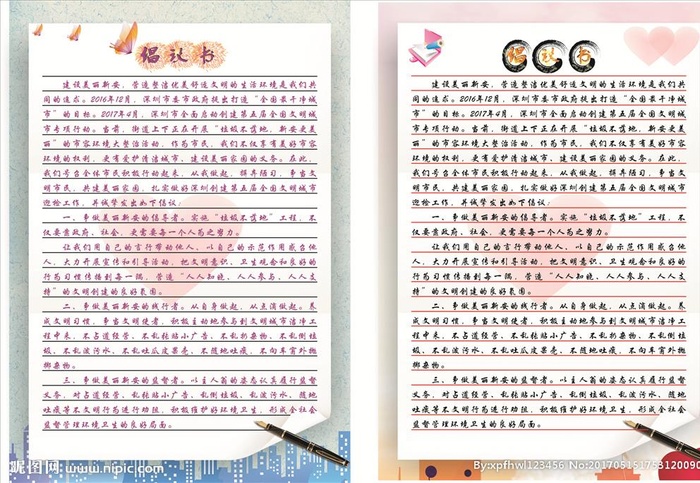 倡议书
建设美丽新安，营造整洁优美舒适文明的生活环境是我们共
同的追求。2016年12月，深圳市委市政府提出打造“全国最干净城
市”的目标。2017年4月，深圳市全面启动创建第五届全国文明城
市专项行动。当前，街道上下正在开展“垃圾不落地，新安更美
丽”的市容环境大整治活动，作为市民，我们不仅享有美好市容
环境的权利，更有爱护清洁城市、建设美丽家园的义务。在此，
我们号召全体市民积极行动起来，从我做起，摒弃陋习，争当文
明市民，共建美丽家园，扎实做好深圳创建第五届全国文明城市
迎检工作，并诚挚发出如下倡议：
一、争做美丽新安的倡导者。实施“垃圾不落地”工程，不
仅要靠政府、社会，更需要每一个人为之努力。
让我们用自己的言行带动他人，以自己的示范作用感召他
人，大力开展宣传和引导活动，把文明意识、卫生观念和良好的
行为习惯传播到每一隅，营造“人人知晓、人人参与、人人支
持”的文明创建的良好氛围。
二、争做美丽新安的践行者。从自身做起，从点滴做起。养
成文明习惯，争当文明使者，积极主动地参与到文明城市洁净工
程中来，不占道经营、不乱张贴小广告、不乱扔杂物、不乱倒垃
圾、不乱泼污水，不乱吐瓜皮果壳、不随地吐痰、不向车窗外抛
掷杂物。
三、争做美丽新安的监督者。以主人翁的姿态认真履行监督
义务，对占道经营、乱张贴小广告，乱倒垃圾、乱泼污水、随地
吐痰等不文明行为进行劝阻，积极维护好环境卫生，形成全社会
监督管理环境卫生的良好局面。
昵图网 www.nipic.com
倡议书
建设美丽新安，营造整洁优美舒适文明的生活环境是我们共
同的追求。2016年12月，深圳市委市政府提出打造“全国最干净城
市”的目标。2017年4月，深圳市全面启动创建第五届全国文明城
市专项行动。当前，街道上下正在开展“垃圾不落地，新安更美
丽”的市容环境大整治活动，作为市民，我们不仅享有美好市容
环境的权利，更有爱护清洁城市、建设美丽家园的义务。在此，
我们号召全体市民积极行动起来，从我做起，摒弃陋习，争当文
明市民，共建美丽家园，扎实做好深圳创建第五届全国文明城市
迎检工作，并诚挚发出如下倡议：
一、争做美丽新安的倡导者。实施“垃圾不落地”工程，不
仅要靠政府、社会，更需要每一个人为之努力。
让我们用自己的言行带动他人，以自己的示范作用感召他
人，大力开展宣传和引导活动，把文明意识、卫生观念和良好的
行为习惯传播到每一隅，营造“人人知晓、人人参与、人人支
持”的文明创建的良好氛围。
二、争做美丽新安的践行者。从自身做起，从点滴做起。养
成文明习惯，争当文明使者，积极主动地参与到文明城市洁净工
程中来，不占道经营、不乱张贴小广告、不乱扔杂物、不乱倒垃
圾、不乱泼污水，不乱吐瓜皮果壳、不随地吐痰、不向车窗外抛
掷杂物。
三、争做美丽新安的监督者。以主人翁的姿态认真履行监督
义务，对占道经营、乱张贴小广告，乱倒垃圾、乱泼污水、随地
吐痰等不文明行为进行劝阻，积极维护好环境卫生，形成全社会
监督管理环境卫生的良好局面。
By:xpfhwl123456 No:201705151753120090